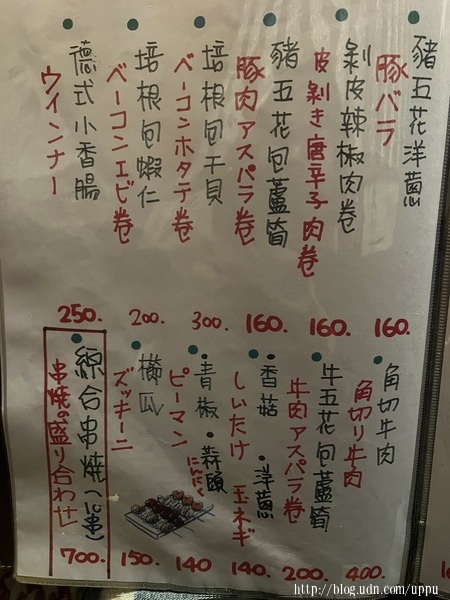 豬五花洋蔥
豚バラ
160.
剝皮辣椒肉卷
皮剝き唐辛子肉卷
160.
豬五花包蘆筍
豚肉アスパラ卷
160.
培根包干貝
ベーコンホタテ卷
300.
培根包蝦仁
ベーコンエビ卷
200.
德式小香腸
ウインナー
250.
角切牛肉
角切り牛肉
400.
牛五花包蘆筍
牛肉アスパラ卷
200.
香菇・洋蔥
しいたけ 玉ネギ
140.
青椒・蒜頭
ピーマン にんにく
140
櫛瓜
ズッキーニ
150.
綜合串燒
串燒の盛り合わせ
700.
http://blog.udn.com/uppu